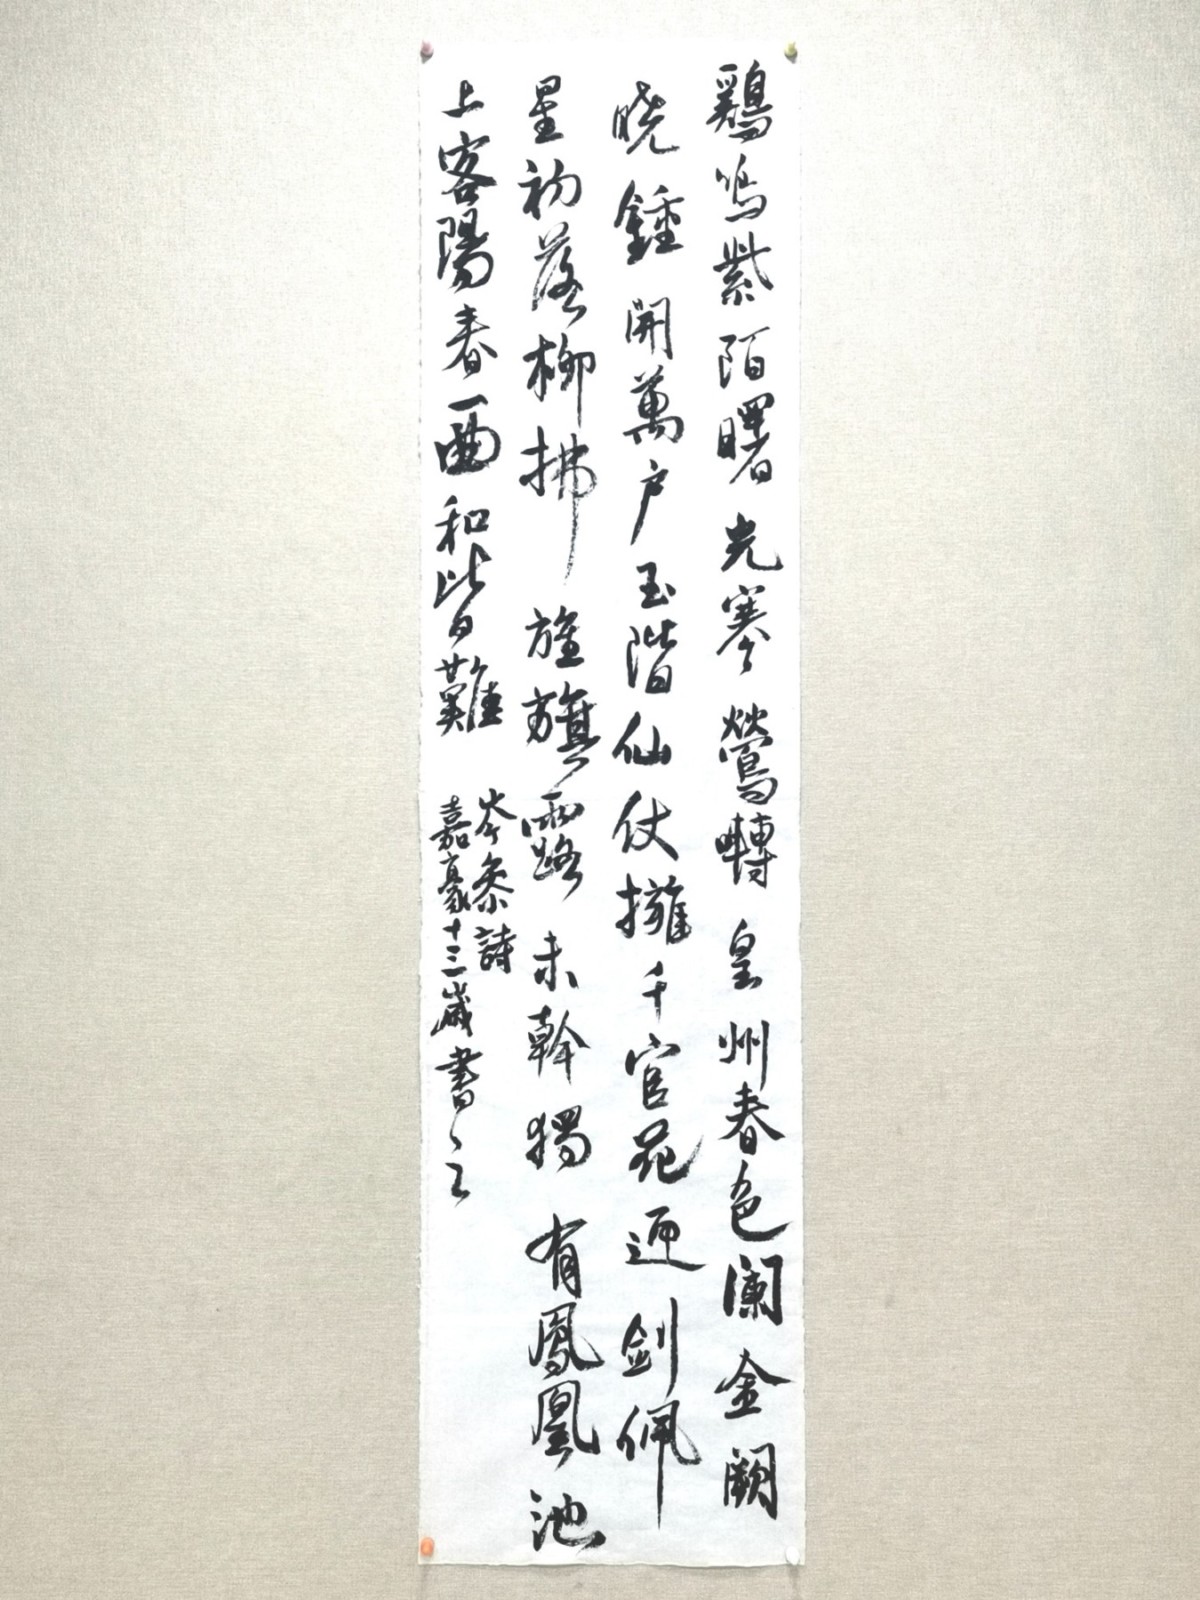 鷄鳴紫陌曙光寒鶯囀皇州春色闌金闕
曉鍾開萬户玉階仙仗擁千官花迎劍佩
星初落柳拂旌旗露未幹獨有鳳凰池
上客陽春一曲和皆難
岑參詩
嘉豪十三歲書